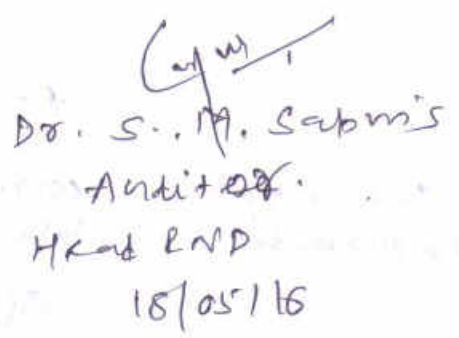 Dr. S. M. Sabnis
Auditor.
Head RND
18/05/16